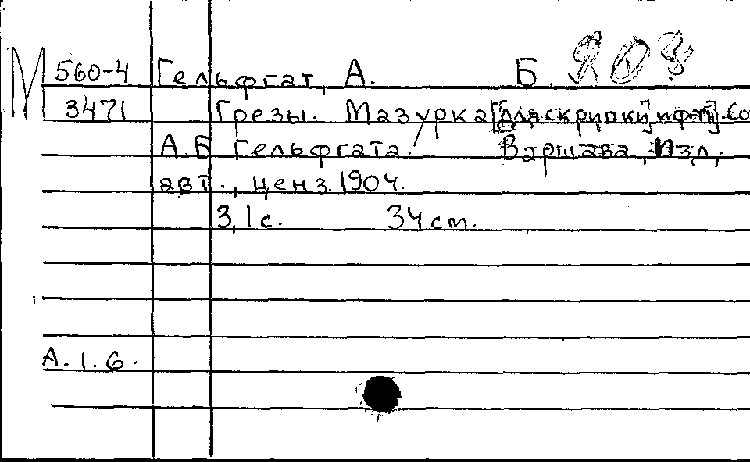 М 560-4 Гельфгат, А. Б. 208
3471 Грезы. Мазурка [для скрипки и ф-п]. Со
А.Б Гельфгата. Варшава, Изд.
авт., ценз. 1904.
3, 1 с. 34 см.
А. 1. 6.